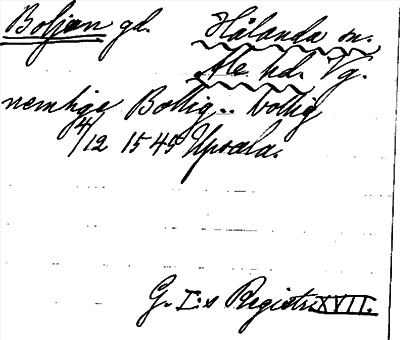 Boljen gd. Hålanda sn.
Ale hd. Vg.
nemlige Bollig.. bollig
4/12 1545 Upsala.
G. I:s Registr. XVII.